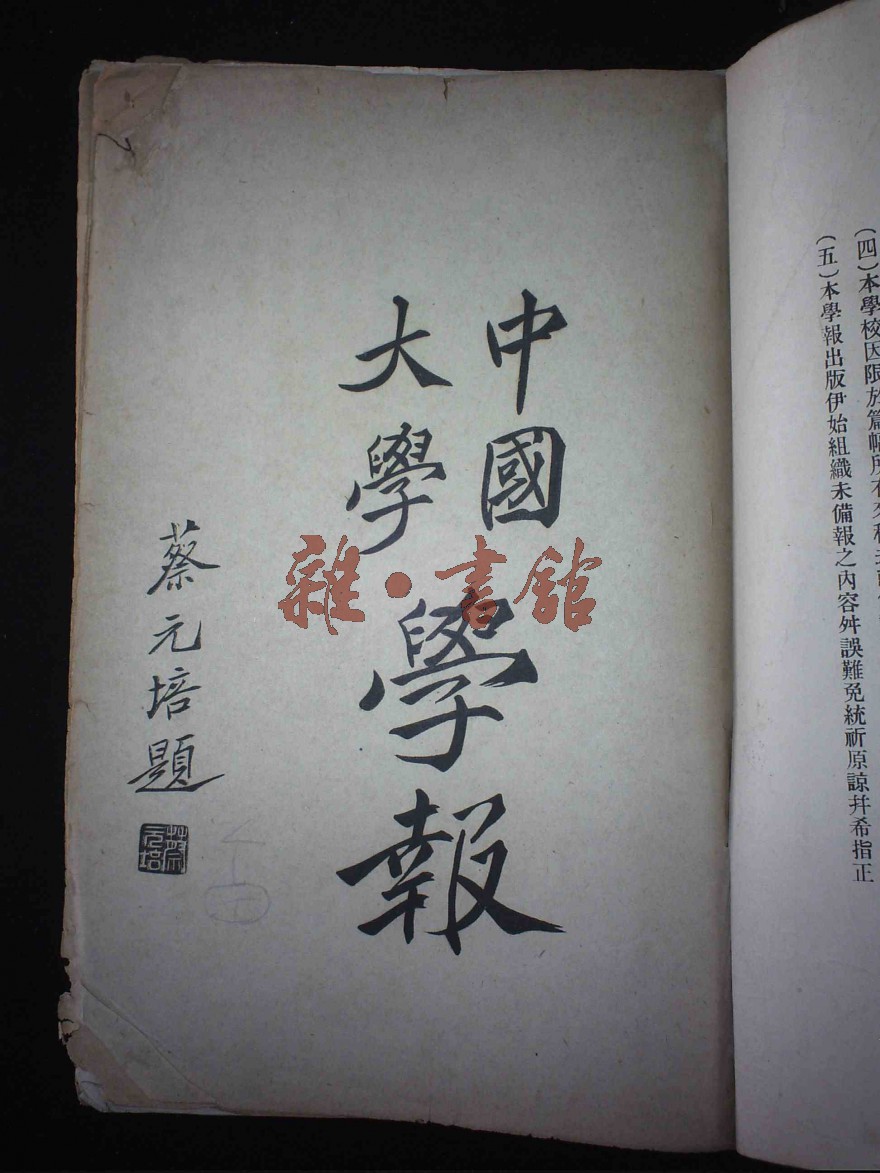 (四)本學校因限於篇幅所有來稿
(五)本學報出版伊始組織未備報之內容舛誤難免統祈原諒幷希指正
中國
大學
學報
蔡元培題
蔡元培
雜·書館